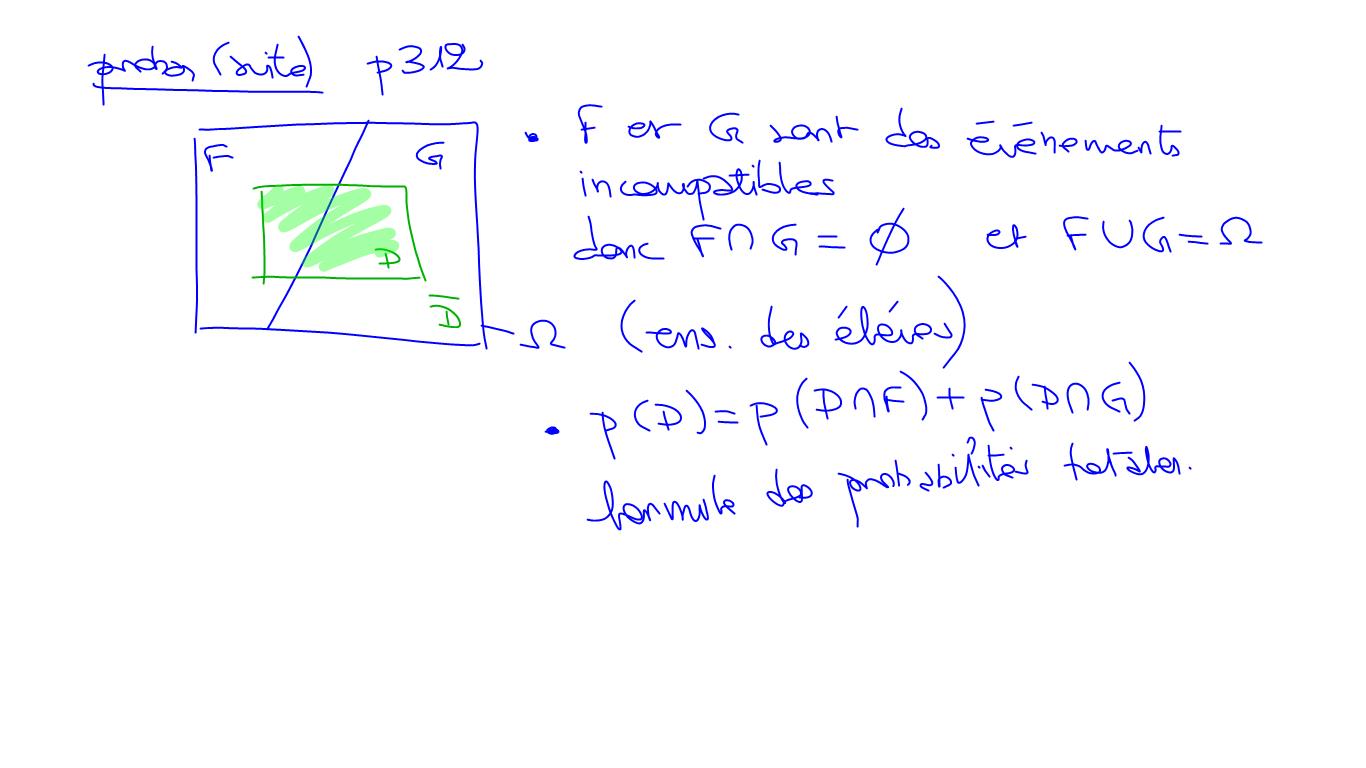 probas (suite) p312
F G
D
D̅
Ω (ens. des élèves)
• F et G sont des événements
incompatibles
donc F∩G = ∅ et F∪G = Ω
• p(D) = p(D∩F) + p(D∩G)
formule des probabilités totales.